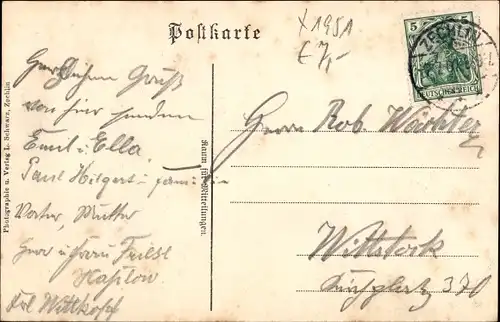 Postkarte
X1951
£7,-
5
ZECHLIN
DEUTSCHES REICH
Photographie u. Verlag L. Schwarz, Zechlin
Raum für Mitteilungen.
Herzlichen Gruß
von hier senden
Emil u Ella
Paul Hilgert u Familie
Vater, Mutter
Herr u Frau
Frl Wittkopf
Herrn Rob. Wächter
Wittstock
Kirchplatz 370